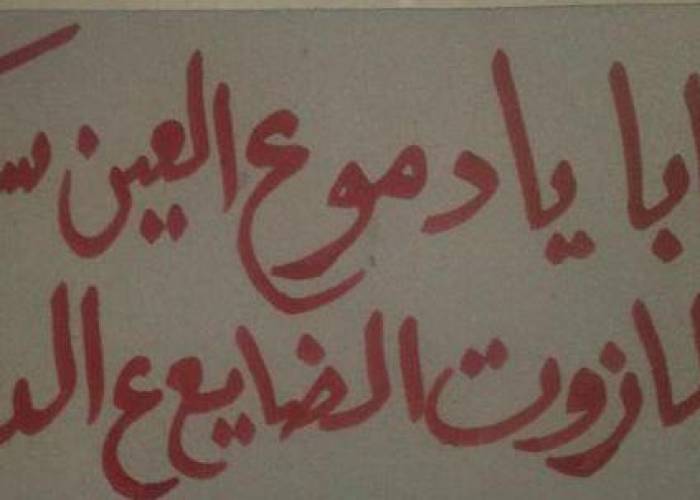 ابا يا دموع العين س
لمازوت الضايع ع الد